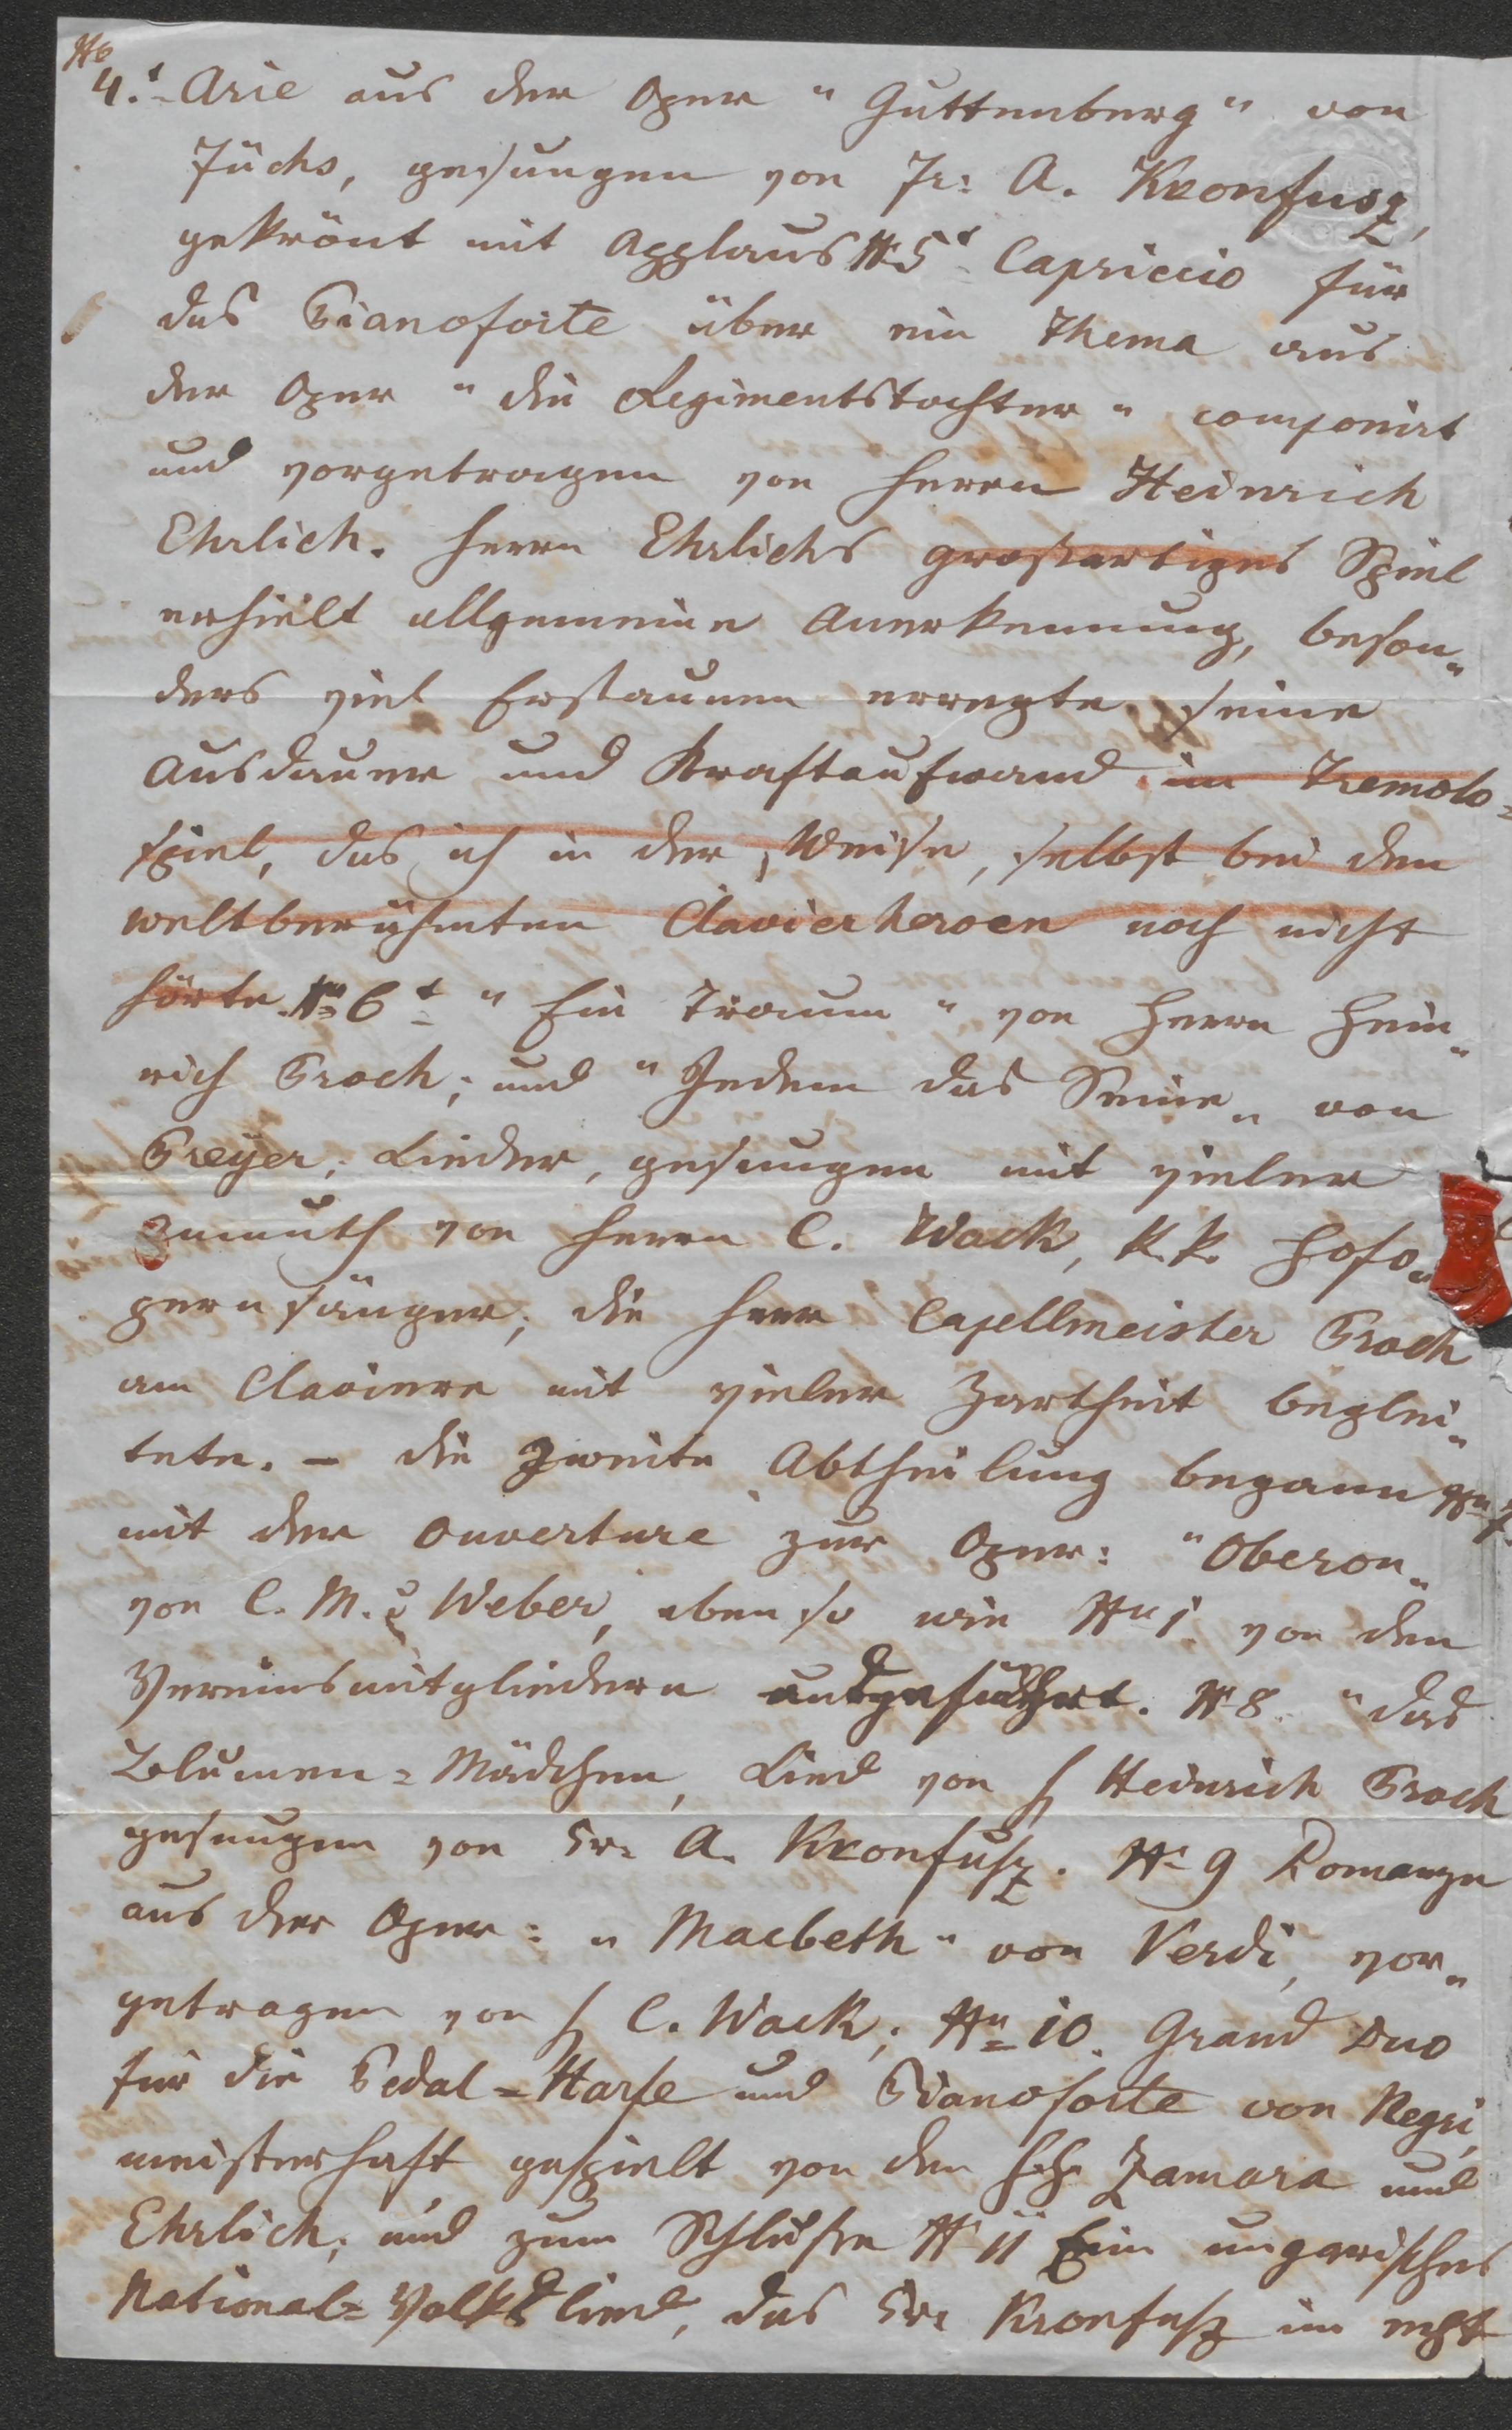 No
4.t Arie aus der Oper "Guttenberg" von
Füchs, gesungen von Fr: A. Kronfusz,
gekrönt mit Applaus No 5t Capriccio für
das Pianoforte über ein Thema aus
der Oper "die Regimentstochter" componirt
und vorgetragen von Herrn Heinrich
Ehrlich. Herrn Ehrlichs großartiges Spiel
erhielt allgemeine Anerkennung, beson„
ders viel Erstaunen erregte seine
Ausdauer und Kraftaufwand im Tremolo=
spiel, das ich in der Weise, selbst bei den
weltberühmten Clavierheroen noch nicht
hörte. No 6t "Ein Traum" von Herrn Hein„
rich Proch; und "Jedem das Seine„ von
Preÿer; Lieder, gesungen mit vieler
von Herrn C. Wack, k.k. Hofo„
pernsänger; die Herr Capellmeister Proch
am Claviere mit vieler Zartheit beglei„
tete. – Die zweite Abtheilung begann No 7.
mit der Ouverture zur Oper: "Oberon„
von C. M. v Weber, eben so wie No 1. von den
Vereinsmitgliedern ausgeführt. No 8. "das
Blumen=Mädchen, Lied von H Heinrich Proch
gesungen von Fr: A. Kronfusz. No 9 Romanze
aus der Oper: "Macbeth" von Verdi, vor„
getragen von H C. Wack; No 10. Grand Duo
für die Pedal=Harfe und Pianoforte von Negri,
meisterhaft gespielt von den HH. Zamara und
Ehrlich; und zum Schluße No 11 Ein ungarisches
National=Volkslied, das Fr: Kronfusz im echt